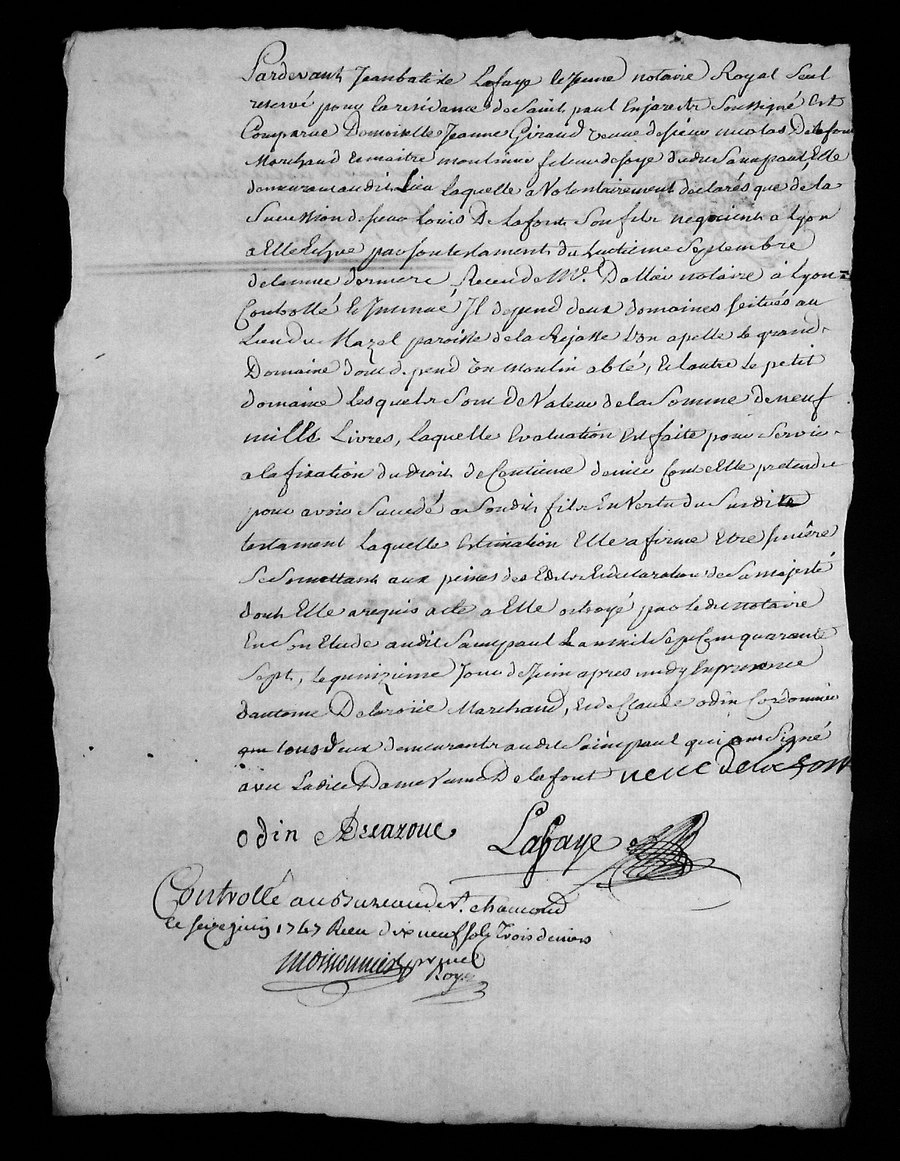 Pardevant Jeanbatiste Lafaye le Jeune notaire Royal Seul
reservé pour la residance de Saint paul Enjarestr Soussigné Est
Comparue Demoiselle Jeanne Giraud veuve de sieur nicolas Delafont
Marchand Et maitre moulinier fileur de soye dudit Saint paul, Elle
demeurant audit Lieu laquelle a Volontairement declarés que de la
Succession de sieur Louis De Lafont Son fils negociant a Lyon
a Elle Echue par son testament du huitieme Septembre
de lannée derniere, Receu de Me. Dalliée notaire à Lyon
Controllé Et Insinué, Il depend deux domaines scitués au
Lieu du Mazel paroisse de la Rejasse Lon apelle le grand
Domaine dont depend un Moulin a blé, Et lautre le petit
domaine Lesquels Sont de Valeur de la Somme de neuf
mills Livres, laquelle Evaluation Est faite pour Servir
a la fixation du droit de Centieme denier dont Elle pretendue
pour avoir Succedé a Sondit fils En Vertu du Susdite
testament laquelle Estimation Elle afirme Etre sinsère
Se Somettant aux peines des Edits Et declaration de Sa majesté
dont Elle a requis acte a Elle octroyé par ledit notaire
En Son Etude audit Saint paul Lan mil Sept Cent quarante
Sept, le quinzieme Jour de Juin apres midy En presence
dantoine Delaroüe Marchand, Et de Claude odin Cordonnier
tous deux demeurants audit Saint paul qui ont Signé
avec Ladite Dame Veuve Delafont veuc delafont
odin Delaroue Lafaye
Controllé au Bureau de St. chamond
le seize juin 1747 Receu dix neuf sols Trois deniers
moissonnier
Roy